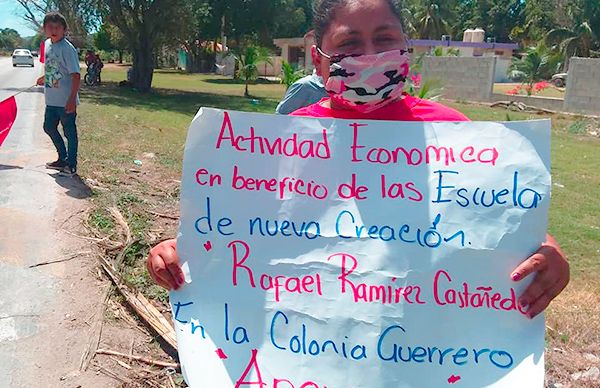 Actividad Economica
en beneficio de las Escuela
de nueva Creación.
Rafael Ramirez Castañeda
En la Colonia Guerrero